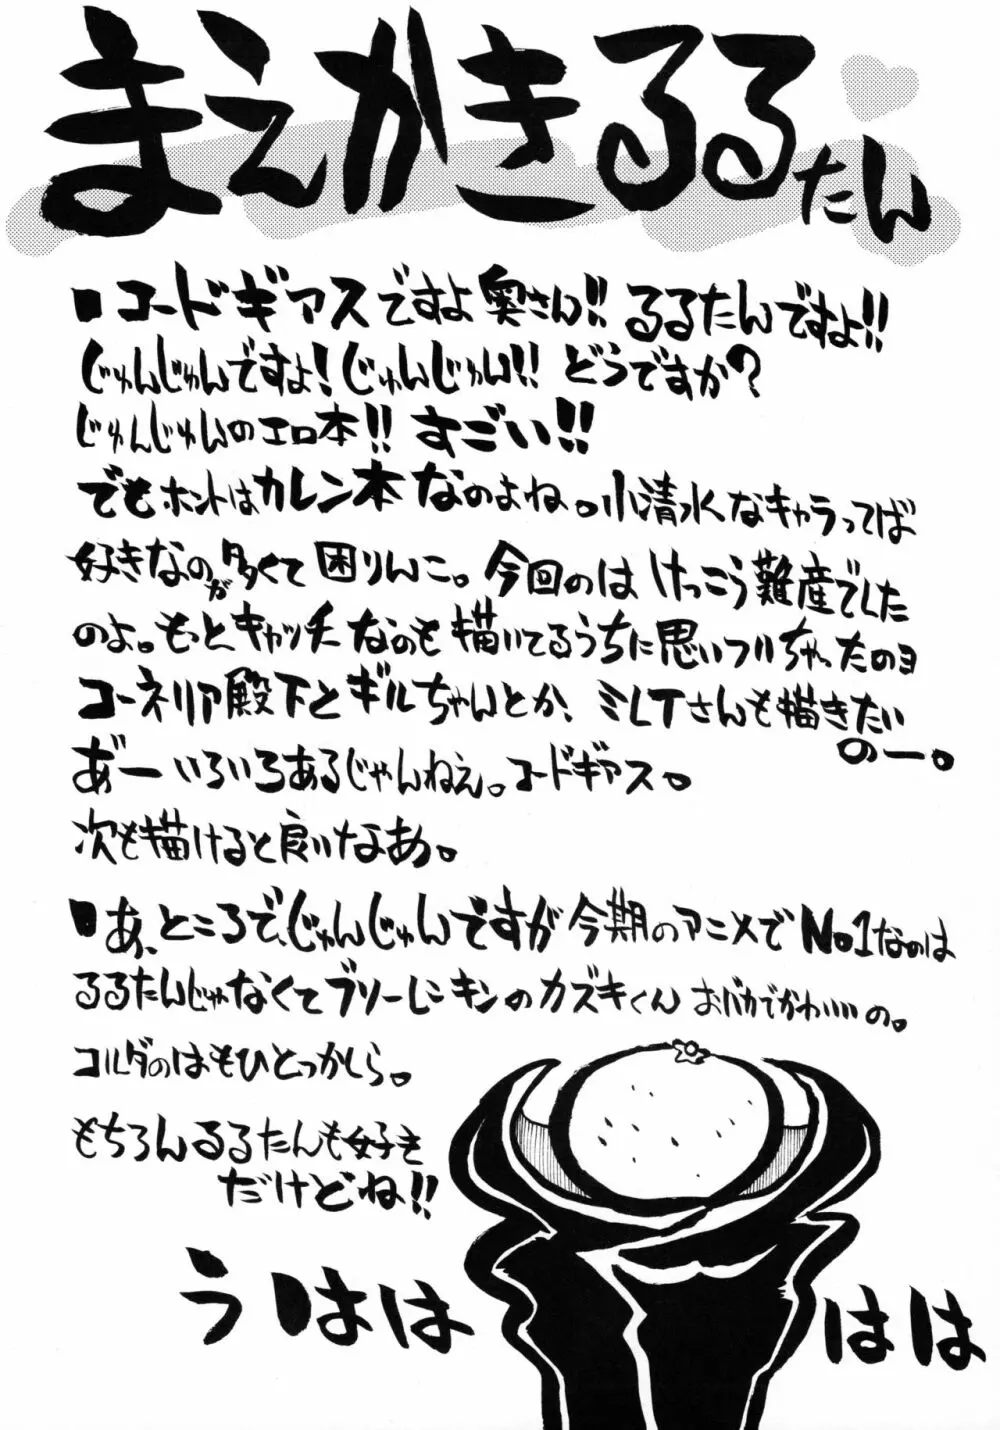 まえがきるるたん
■コードギアスですよ奥さん!!るるたんですよ!!
じゅんじゅんですよ!じゅんじゅん!!どうですか?
じゅんじゅんのエロ本!!すごい!!
でもホントはカレン本なのよね。小清水なキャラってば
好きなのが多くて困りんこ。今回のはけっこう難産でした
のよ。もっとキャッチなのも描いてるうちに思いついちゃったのヨ
コーネリア殿下とギルちゃんとか、ミレイさんも描きたい
のー。
あ゛ーいろいろあるじゃんねえ。コードギアス。
次も描けると良いなあ。
■あ、ところで、じゅんじゅんですが今期のアニメでNo.1なのは
るるたんじゃなくてブソーレンキンのカズキくん おバカでかわいいの。
コルダのはもひとつかしら。
もちろんるるたんも好き
だけどね!!
うははは
はは